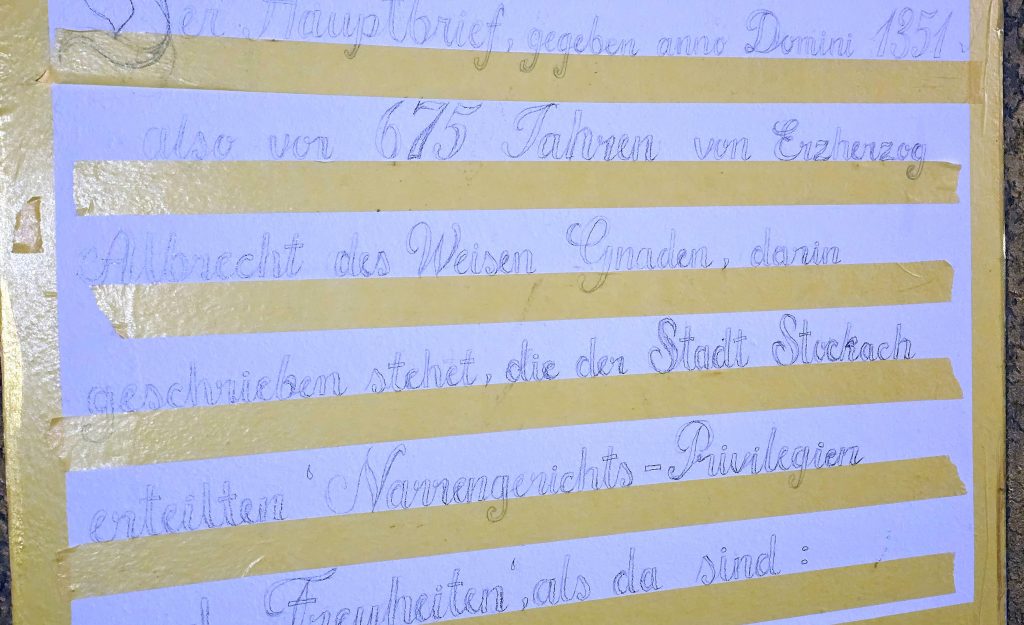 Der Hauptbrief, gegeben anno Domini 1351
also vor 675 Jahren von Erzherzog
Albrecht des Weisen Gnaden, darin
geschrieben stehet, die der Stadt Stockach
erteilten 'Narrengerichts-Privilegien
Freyheiten', als da sind: